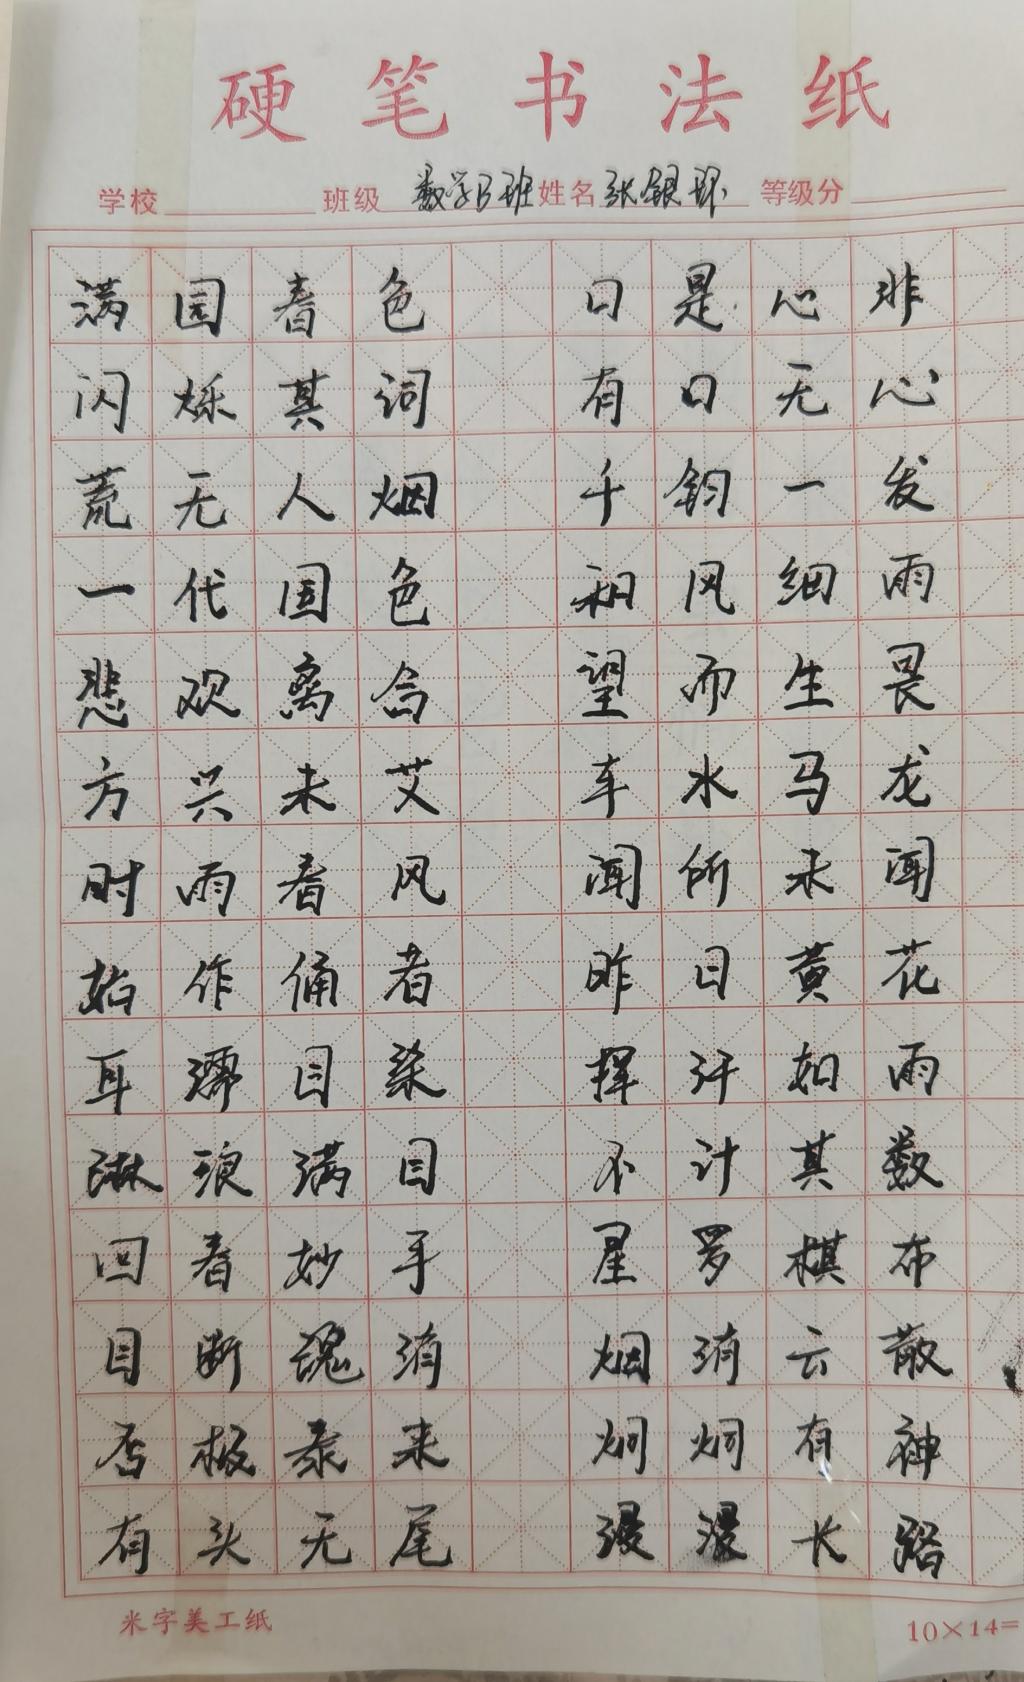 硬笔书法纸
学校 班级 数学B班 姓名 张银环 等级分
满园春色 口是心非
闪烁其词 有口无心
荒无人烟 千钧一发
一代国色 和风细雨
悲欢离合 望而生畏
方兴未艾 车水马龙
时雨春风 闻所未闻
始作俑者 昨日黄花
耳濡目染 挥汗如雨
琳琅满目 不计其数
回春妙手 星罗棋布
目断魂消 烟消云散
否极泰来 炯炯有神
有头无尾 漫漫长路
米字美工纸 10×14=